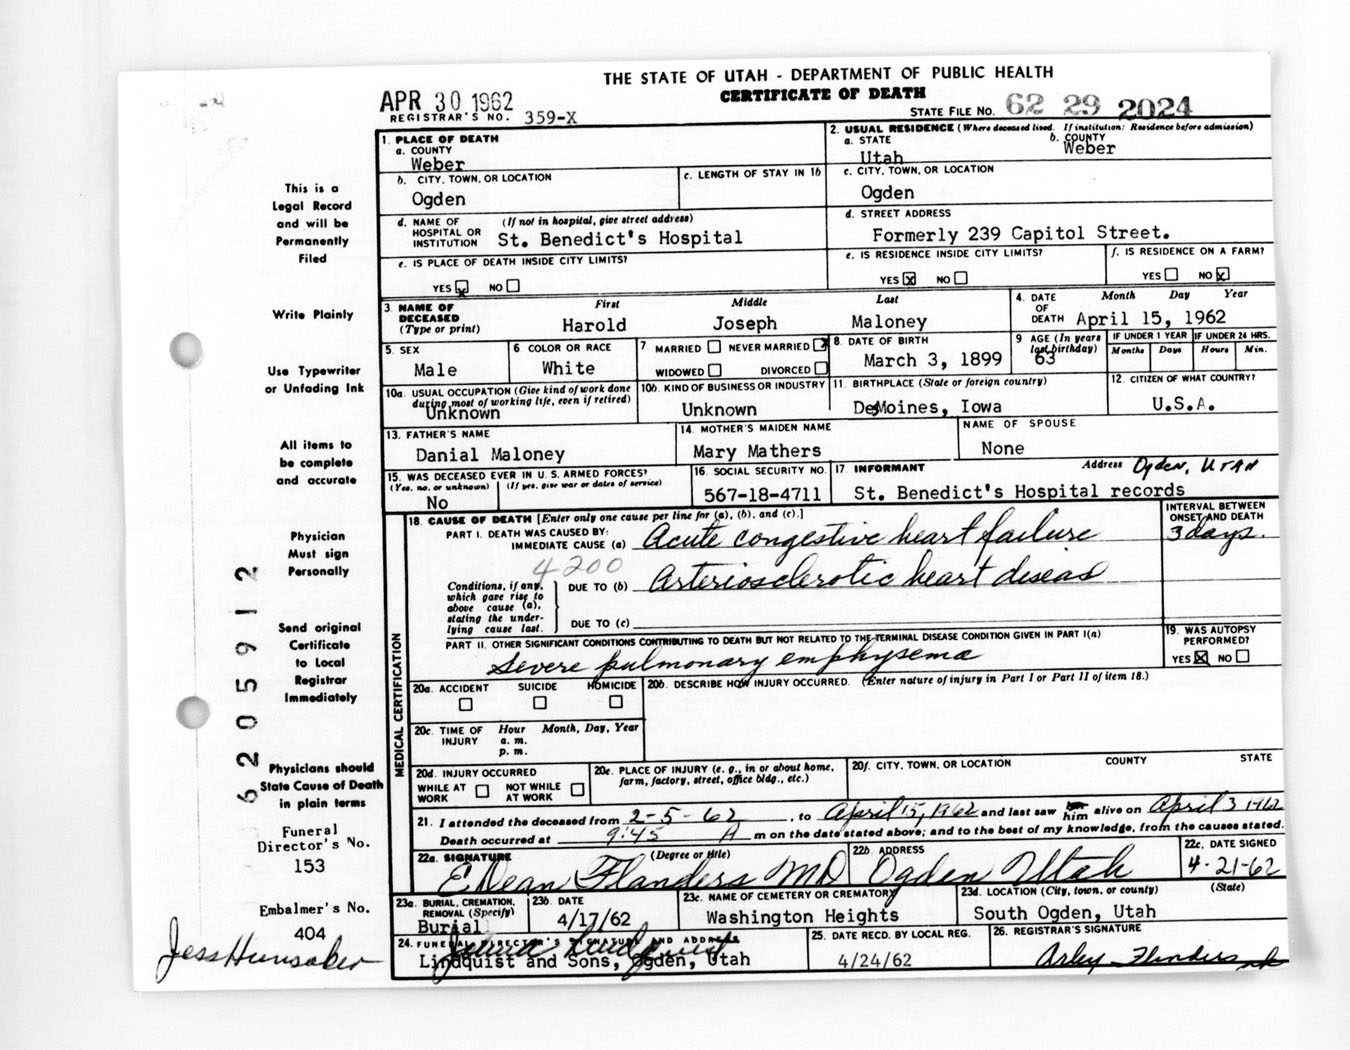 THE STATE OF UTAH - DEPARTMENT OF PUBLIC HEALTH
CERTIFICATE OF DEATH
APR 30 1962
REGISTRAR'S NO. 359-X
STATE FILE NO. 62 29 2024
1. PLACE OF DEATH
a. COUNTY
Weber
2. USUAL RESIDENCE (Where deceased lived. If institution: Residence before admission)
a. STATE
Utah
b. COUNTY
Weber
b. CITY, TOWN, OR LOCATION
Ogden
c. LENGTH OF STAY IN 1b
c. CITY, TOWN, OR LOCATION
Ogden
d. NAME OF HOSPITAL OR INSTITUTION
(If not in hospital, give street address)
St. Benedict's Hospital
d. STREET ADDRESS
Formerly 239 Capitol Street.
e. IS PLACE OF DEATH INSIDE CITY LIMITS?
YES x NO
e. IS RESIDENCE INSIDE CITY LIMITS?
YES x NO
f. IS RESIDENCE ON A FARM?
YES NO x
3. NAME OF DECEASED
(Type or print)
First Middle Last
Harold Joseph Maloney
4. DATE OF DEATH
Month Day Year
April 15, 1962
5. SEX
Male
6 COLOR OR RACE
White
7 MARRIED NEVER MARRIED x
WIDOWED DIVORCED
8. DATE OF BIRTH
March 3, 1899
9 AGE (In years last birthday)
63
IF UNDER 1 YEAR
Months Days
IF UNDER 24 HRS.
Hours Min.
10a. USUAL OCCUPATION (Give kind of work done during most of working life, even if retired)
Unknown
10b. KIND OF BUSINESS OR INDUSTRY
Unknown
11. BIRTHPLACE (State or foreign country)
DesMoines, Iowa
12. CITIZEN OF WHAT COUNTRY?
U.S.A.
13. FATHER'S NAME
Danial Maloney
14. MOTHER'S MAIDEN NAME
Mary Mathers
NAME OF SPOUSE
None
15. WAS DECEASED EVER IN U. S. ARMED FORCES?
(Yes, no, or unknown) (If yes, give war or dates of service)
No
16. SOCIAL SECURITY NO.
567-18-4711
17. INFORMANT Address Ogden, UTAH
St. Benedict's Hospital records
MEDICAL CERTIFICATION
18. CAUSE OF DEATH [Enter only one cause per line for (a), (b), and (c).]
INTERVAL BETWEEN ONSET AND DEATH
PART I. DEATH WAS CAUSED BY:
IMMEDIATE CAUSE (a) Acute congestive heart failure
3 days.
4200
Conditions, if any, which gave rise to above cause (a), stating the underlying cause last.
DUE TO (b) Arteriosclerotic heart disease
DUE TO (c)
PART II. OTHER SIGNIFICANT CONDITIONS CONTRIBUTING TO DEATH BUT NOT RELATED TO THE TERMINAL DISEASE CONDITION GIVEN IN PART I(a)
Severe pulmonary emphysema
19. WAS AUTOPSY PERFORMED?
YES x NO
20a. ACCIDENT SUICIDE HOMICIDE
20b. DESCRIBE HOW INJURY OCCURRED. (Enter nature of injury in Part I or Part II of item 18.)
20c. TIME OF INJURY
Hour Month, Day, Year
a. m.
p. m.
20d. INJURY OCCURRED
WHILE AT WORK NOT WHILE AT WORK
20e. PLACE OF INJURY (e. g., in or about home, farm, factory, street, office bldg., etc.)
20f. CITY, TOWN, OR LOCATION COUNTY STATE
21. I attended the deceased from 2-5-62, to April 15, 1962 and last saw him alive on April 3 1962
Death occurred at 9:45 A m on the date stated above; and to the best of my knowledge, from the causes stated.
22a. SIGNATURE (Degree or title)
E Dean Flanders MD
22b. ADDRESS
Ogden Utah
22c. DATE SIGNED
4-21-62
23a. BURIAL, CREMATION, REMOVAL (Specify)
Burial
23b. DATE
4/17/62
23c. NAME OF CEMETERY OR CREMATORY
Washington Heights
23d. LOCATION (City, town, or county) (State)
South Ogden, Utah
24. FUNERAL DIRECTOR'S SIGNATURE AND ADDRESS
Lindquist and Sons, Ogden, Utah
25. DATE RECD. BY LOCAL REG.
4/24/62
26. REGISTRAR'S SIGNATURE
Arley Flinders
This is a
Legal Record
and will be
Permanently
Filed
Write Plainly
Use Typewriter
or Unfading Ink
All items to
be complete
and accurate
Physician
Must sign
Personally
Send original
Certificate
to Local
Registrar
Immediately
Physicians should
State Cause of Death
in plain terms
Funeral
Director's No.
153
Embalmer's No.
404
Jess Hunsaker
6205912